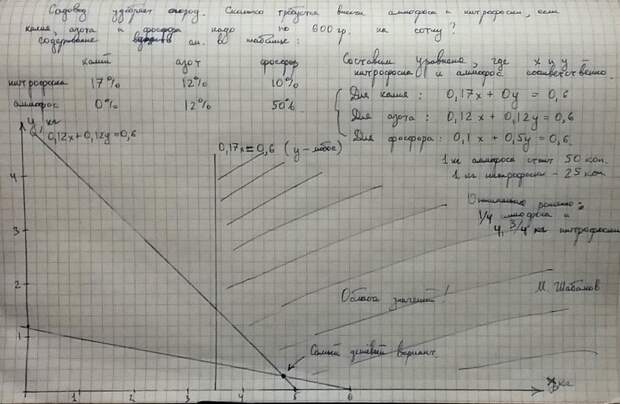 Садовод удобряет огород. Сколько требуется внести аммофоса и нитрофоски, если
калия, азота и фосфора надо по 600 гр. на сотку?
содержание см. в таблице:
калий азот фосфор
нитрофоска 17% 12% 10%
аммофос 0% 12% 50%
Составим уравнения, где x и y -
нитрофоска и аммофос соответственно.
Для калия: 0,17x + 0y = 0,6
Для азота: 0,12x + 0,12y = 0,6
Для фосфора: 0,1x + 0,5y = 0,6.
1 кг аммофоса стоит 50 коп.
1 кг нитрофоски - 25 коп.
Оптимальное решение:
1/4 аммофоса и
4 3/4 кг нитрофоски
М. Шабанов
y кг
0,12x + 0,12y = 0,6
0,17x = 0,6 (y - любое)
4
3
2
1
Область значений!
Самый дешёвый вариант
1 2 3 4 5 6 x кг